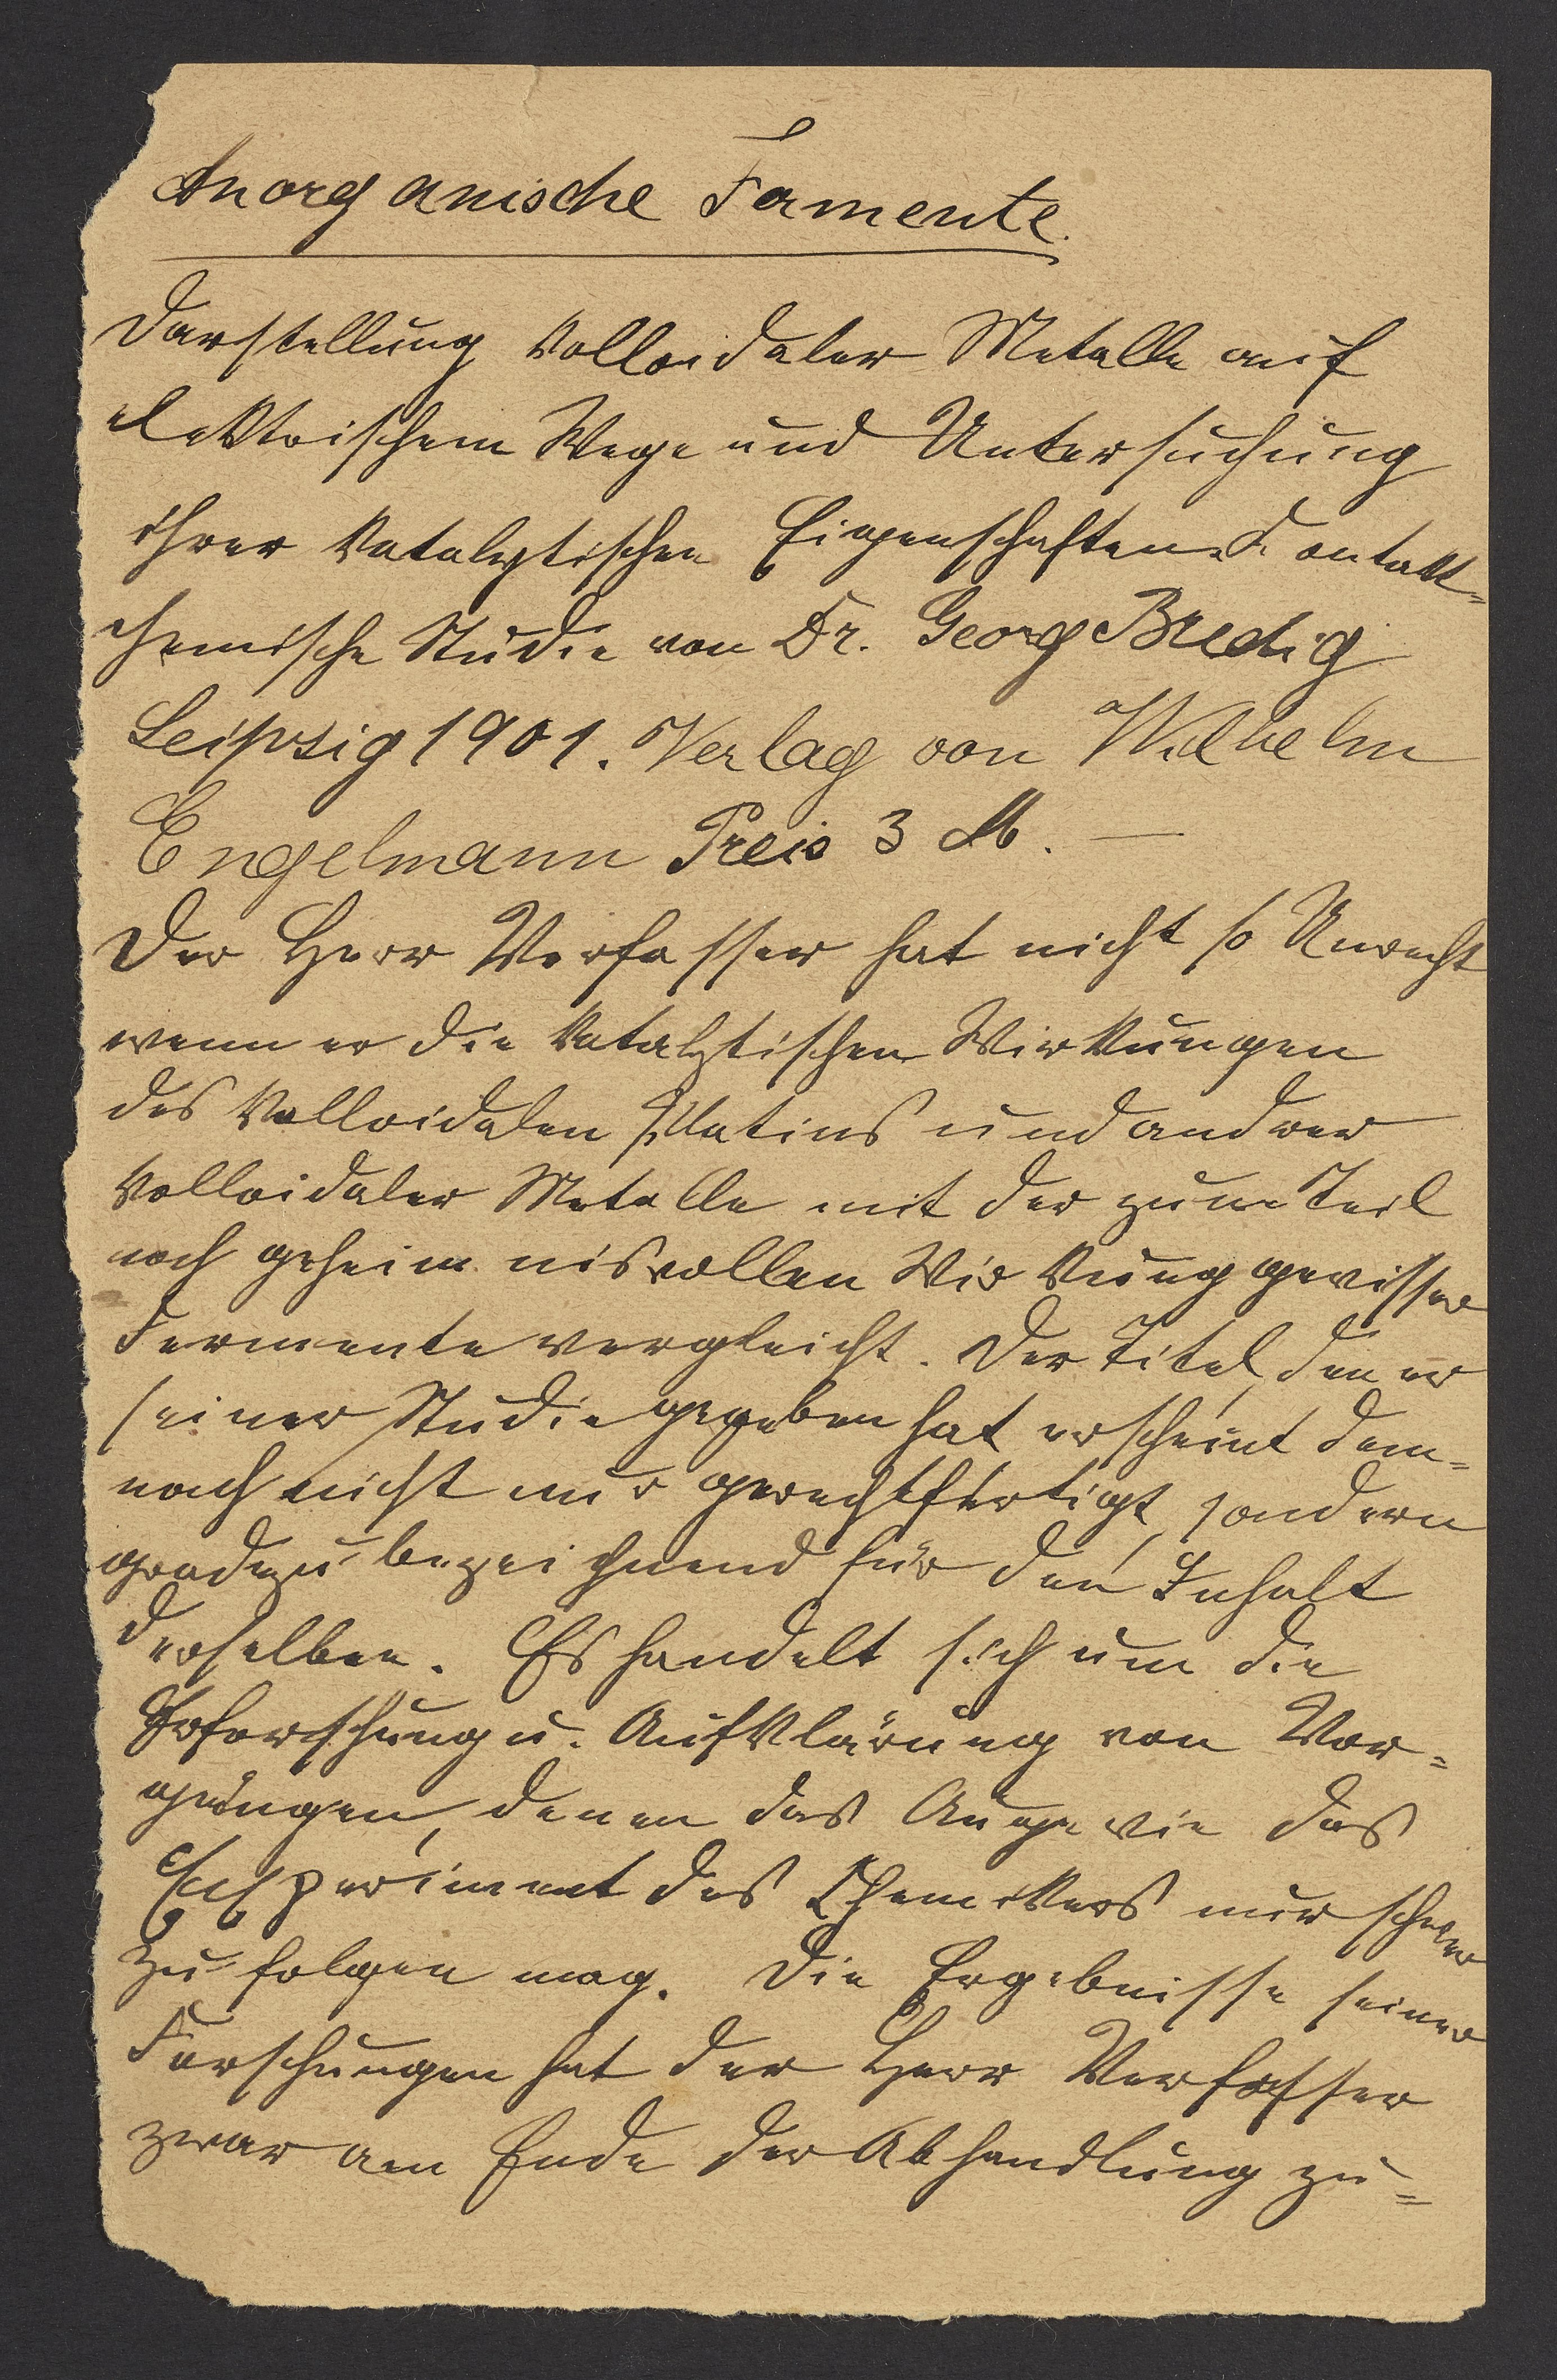 Anorganische Fermente.
Darstellung kolloidaler Metalle auf
elektrischem Wege und Untersuchung
ihrer katalytischen Eigenschaften. Kontakt=
chemische Studie von Dr. Georg Bredig
Leipzig 1901. Verlag von Wilhelm
Engelmann Preis 3 M. —
Der Herr Verfasser hat nicht so Unrecht
wenn er die katalytischen Wirkungen
des kolloidalen Platins und andrer
kolloidaler Metalle mit der zum Teil
noch geheimnisvollen Wirkung gewisser
Fermente vergleicht. Der Titel, den er
seiner Studie gegeben hat erscheint dem=
nach nicht nur gerechtfertigt, sondern
gradezu bezeichnend für den Inhalt
derselben. Es handelt sich um die
Erforschung u. Aufklärung von Vor=
gängen, denen das Auge wie das
Experiment des Chemikers nur schwer
zu folgen mag. Die Ergebnisse seiner
Forschungen hat der Herr Verfasser
zwar am Ende der Abhandlung zu=